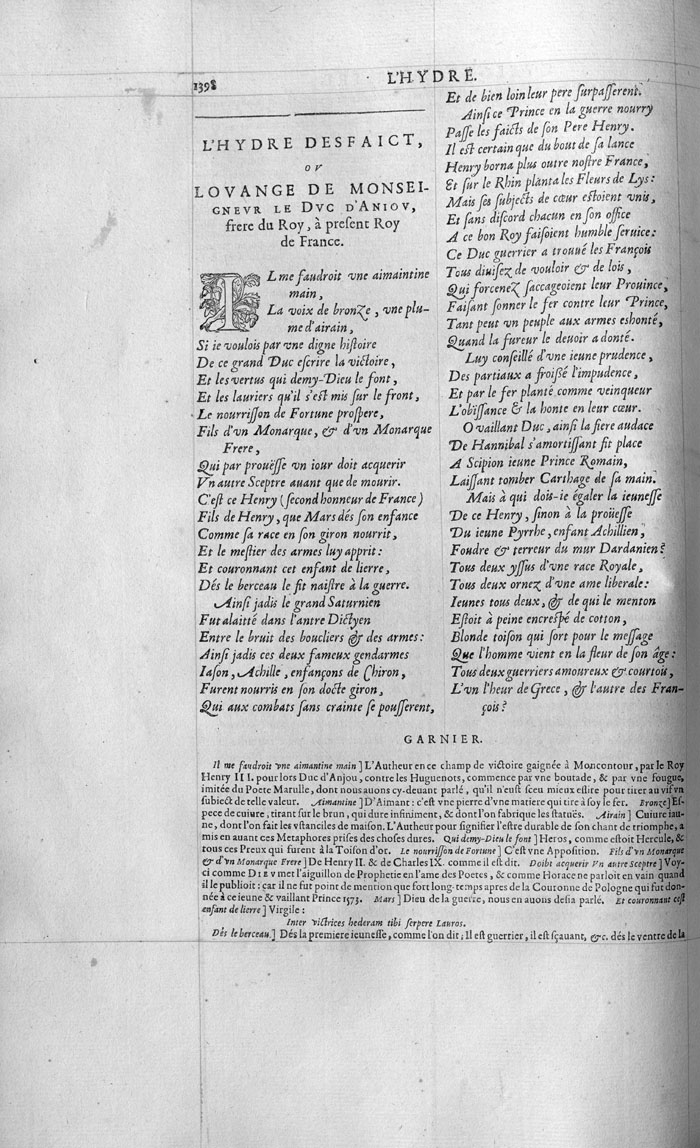 1398
L'HYDRE.
L'HYDRE DESFAICT,
OV
LOVANGE DE MONSEI-
GNEVR LE DVC D'ANIOV,
frere du Roy, à present Roy
de France.
IL me faudroit vne aimaintine
main,
La voix de bronze, vne plu-
me d'airain,
Si ie voulois par vne digne histoire
De ce grand Duc escrire la victoire,
Et les vertus qui demy-Dieu le font,
Et les lauriers qu'il s'est mis sur le front,
Le nourrisson de Fortune prospere,
Fils d'vn Monarque, & d'vn Monarque
Frere,
Qui par prouësse vn iour doit acquerir
Vn autre Sceptre auant que de mourir.
C'est ce Henry (second honneur de France)
Fils de Henry, que Mars dés son enfance
Comme sa race en son giron nourrit,
Et le mestier des armes luy apprit:
Et couronnant cet enfant de lierre,
Dés le berceau le fit naistre à la guerre.
Ainsi jadis le grand Saturnien
Fut alaitté dans l'antre Dictyen
Entre le bruit des boucliers & des armes:
Ainsi jadis ces deux fameux gendarmes
Iason, Achille, enfançons de Chiron,
Furent nourris en son docte giron,
Qui aux combats sans crainte se pousserent,
Et de bien loin leur pere surpasserent.
Ainsi ce Prince en la guerre nourry
Passe les faicts de son Pere Henry.
Il est certain que du bout de sa lance
Henry borna plus outre nostre France,
Et sur le Rhin planta les Fleurs de Lys:
Mais ses subjects de cœur estoient vnis,
Et sans discord chacun en son office
A ce bon Roy faisoient humble seruice:
Ce Duc guerrier a trouué les François
Tous diuisez de vouloir & de lois,
Qui forcenez saccageoient leur Prouince,
Faisant sonner le fer contre leur Prince,
Tant peut vn peuple aux armes eshonté,
Quand la fureur le deuoir a donté.
Luy conseillé d'vne ieune prudence,
Des partiaux a froissé l'impudence,
Et par le fer planté comme veinqueur
L'obissance & la honte en leur cœur.
O vaillant Duc, ainsi la fiere audace
De Hannibal s'amortissant fit place
A Scipion ieune Prince Romain,
Laissant tomber Carthage de sa main.
Mais à qui dois-ie égaler la ieunesse
De ce Henry, sinon à la proüesse
Du ieune Pyrrhe, enfant Achillien,
Foudre & terreur du mur Dardanien?
Tous deux yssus d'vne race Royale,
Tous deux ornez d'vne ame liberale:
Ieunes tous deux, & de qui le menton
Estoit à peine encrespé de cotton,
Blonde toison qui sort pour le message
Que l'homme vient en la fleur de son âge:
Tous deux guerriers amoureux & courtou,
L'vn l'heur de Grece, & l'autre des Fran-
çois?
GARNIER.
Il me faudroit vne aimantine main] L'Autheur en ce champ de victoire gaignée à Moncontour, par le Roy
Henry III. pour lors Duc d'Anjou, contre les Huguenots, commence par vne boutade, & par vne fougue,
imitée du Poete Marulle, dont nous auons cy-deuant parlé, qu'il n'eust sceu mieux eslire pour tirer au vif vn
subiect de telle valeur. Aimantine] D'Aimant: c'est vne pierre d'vne matiere qui tire à soy le fer. Bronze] Es-
pece de cuiure, tirant sur le brun, qui dure infiniment, & dont l'on fabrique les statuës. Airain] Cuiure iau-
ne, dont l'on fait les vstanciles de maison. L'Autheur pour signifier l'estre durable de son chant de triomphe, a
mis en auant ces Metaphores prises des choses dures. Qui demy-Dieu le font] Heros, comme estoit Hercule, &
tous ces Preux qui furent à la Toison d'or. Le nourrisson de Fortune] C'est vne Apposition. Fils d'vn Monarque
& d'vn Monarque Frere] De Henry II. & de Charles IX. comme il est dit. Doibt acquerir Vn autre Sceptre] Voy-
ci comme DIEV met l'aiguillon de Prophetie en l'ame des Poetes, & comme Horace ne parloit en vain quand
il le publioit: car il ne fut point de mention que fort long-temps apres de la Couronne de Pologne qui fut don-
née à ce ieune & vaillant Prince 1573. Mars] Dieu de la guerre, nous en auons desia parlé. Et couronnant cest
enfant de lierre] Virgile:
Inter victrices hederam tibi serpere Lauros.
Dés le berceau.] Dés la premiere ieunesse, comme l'on dit; Il est guerrier, il est sçauant, &c. dés le ventre de la